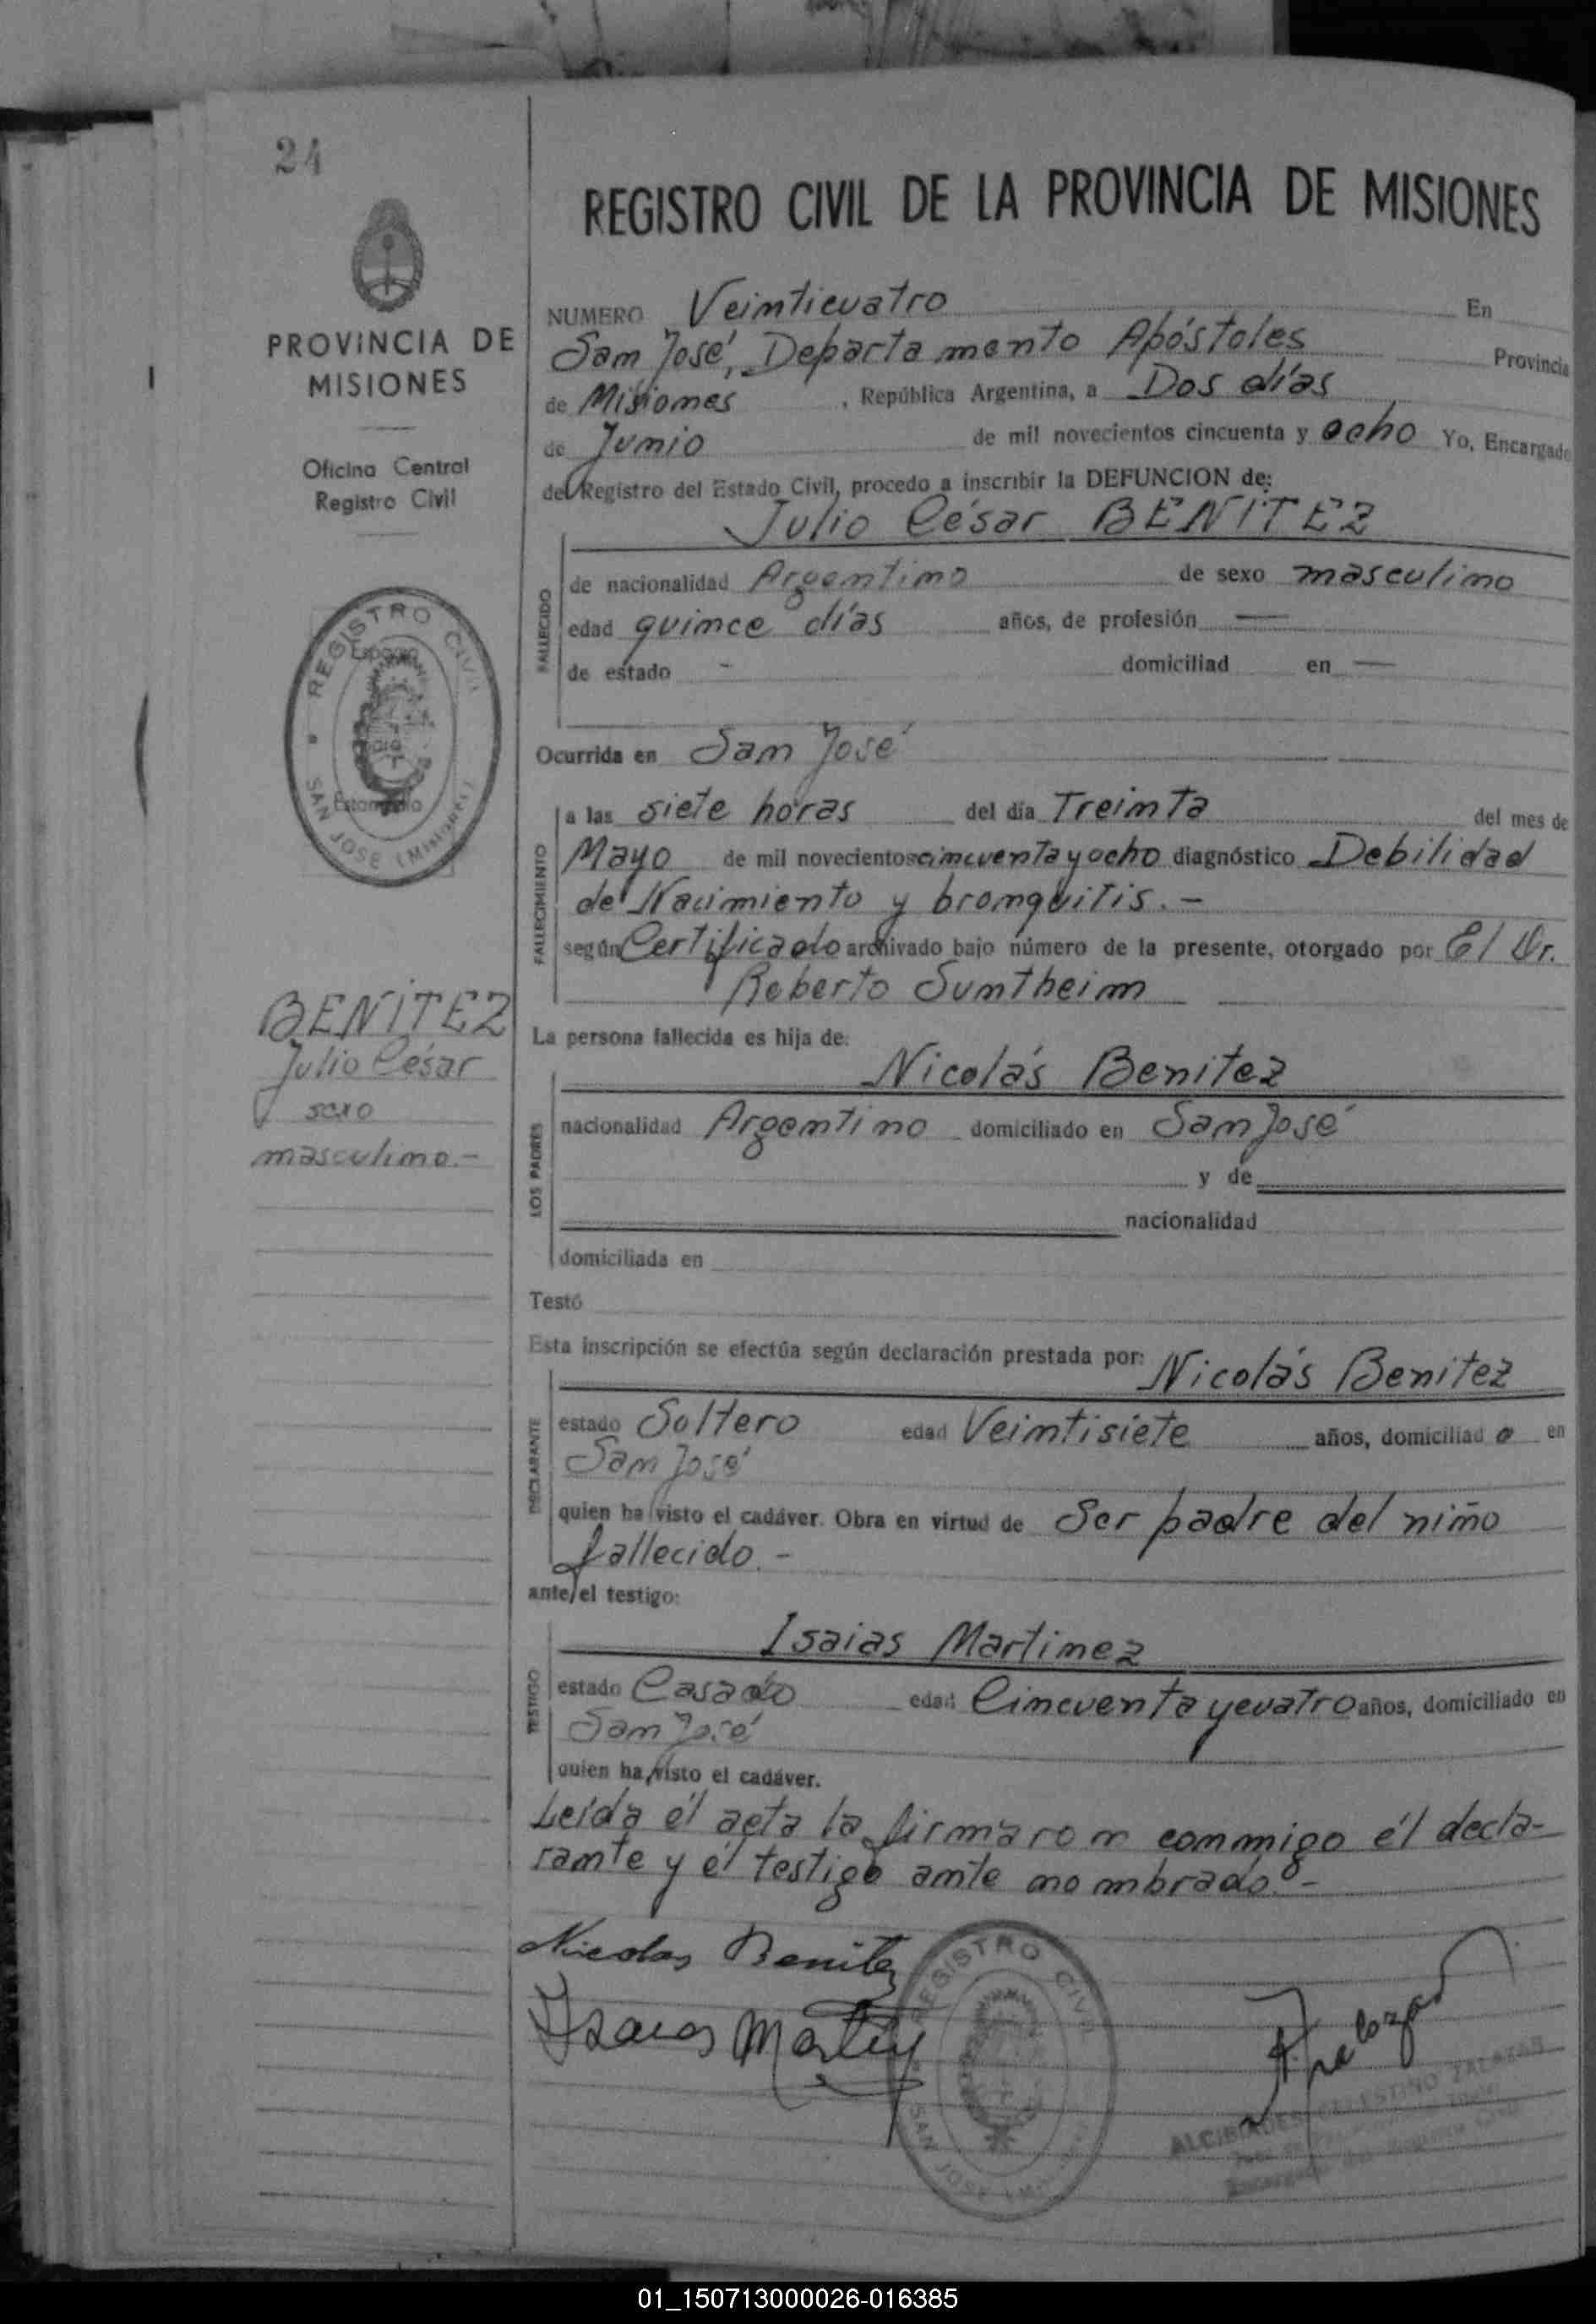 24
PROVINCIA DE
MISIONES
Oficina Central
Registro Civil
REGISTRO CIVIL
SAN JOSE (MISIONES)
BENITEZ
Julio César
sexo
masculino.-
REGISTRO CIVIL DE LA PROVINCIA DE MISIONES
NUMERO Veinticuatro En
San José, Departamento Apóstoles Provincia
de Misiones, República Argentina, a Dos días
de Junio de mil novecientos cincuenta y ocho Yo, Encargado
del Registro del Estado Civil, procedo a inscribir la DEFUNCION de:
Julio César BENITEZ
FALLECIDO
de nacionalidad Argentino de sexo masculino
edad quince días años, de profesión —
de estado - domiciliad en —
Ocurrida en San José
FALLECIMIENTO
a las siete horas del día Treinta del mes de
Mayo de mil novecientos cincuenta y ocho diagnóstico Debilidad
de Nacimiento y bronquitis.-
según Certificado archivado bajo número de la presente, otorgado por El Dr.
Roberto Suntheim
La persona fallecida es hija de:
Nicolás Benitez
LOS PADRES
nacionalidad Argentino domiciliado en San José
y de
nacionalidad
domiciliada en
Testó
Esta inscripción se efectúa según declaración prestada por: Nicolás Benitez
DECLARANTE
estado Soltero edad Veintisiete años, domiciliad o en
San José
quien ha visto el cadáver. Obra en virtud de Ser padre del niño
fallecido.-
ante el testigo:
Isaias Martinez
TESTIGO
estado Casado edad Cincuenta y cuatro años, domiciliado en
San José
quien ha visto el cadáver.
Leída él acta la firmaron conmigo él decla-
rante y él testigo ante nombrado.-
Nicolas Benitez
REGISTRO CIVIL
SAN JOSE
ALCIBIADES CELESTINO ZALAZAR
01_150713000026-016385